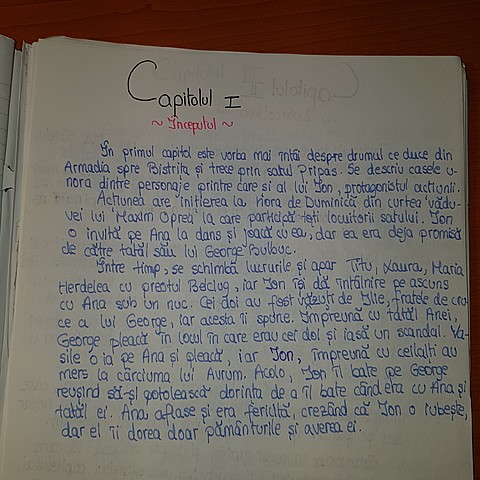 Capitolul I
~ Începutul ~
În primul capitol este vorba mai întâi despre drumul ce duce din
Armadia spre Bistrița și trece prin satul Pripas. Se descriu casele u-
nora dintre personaje printre care și al lui Ion, protagonistul acțiunii.
Acțiunea are inițierea la Hora de Duminică din curtea vădu-
vei lui Maxim Oprea la care participă toți locuitorii satului. Ion
o invită pe Ana la dans și joacă cu ea, dar ea era deja promisă
de către tatăl său lui George Bulbuc.
Între timp, se schimbă lucrurile și apar Titu, Laura, Maria
Herdelea cu preotul Belciug, iar Ion își dă întâlnire pe ascuns
cu Ana sub un nuc. Cei doi au fost văzuți de Ilie, fratele de cru-
ce a lui George, iar acesta îi spune. Împreună cu tatăl Anei,
George pleacă în locul în care erau cei doi și iasă un scandal. Va-
sile o ia pe Ana și pleacă, iar Ion, împreună cu ceilalți au
mers la cârciuma lui Avrum. Acolo, Ion îl bate pe George
reușind să-și potolească dorința de a îl bate când era cu Ana și
tatăl ei. Ana aflase și era fericită, crezând că Ion o iubește,
dar el îi dorea doar pământurile și averea ei.